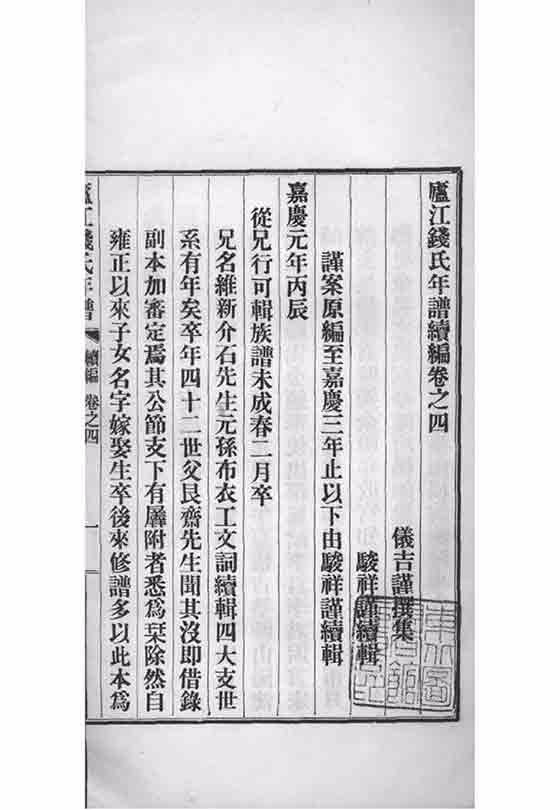 廬江錢氏年譜續編卷之四
儀吉謹撰集
駿祥謹續輯
謹案原編至嘉慶三年止以下由駿祥謹續輯
嘉慶元年丙辰
從兄行可輯族譜未成春二月卒
兄名維新介石先生元孫布衣工文詞續輯四大支世
系有年矣卒年四十二世父艮齋先生聞其沒即借錄
副本加審定焉其公節支下有羼附者悉爲芟除然自
雍正以來子女名字嫁娶生卒後來修譜多以此本爲
廬江錢氏年譜 續編 卷之四 一